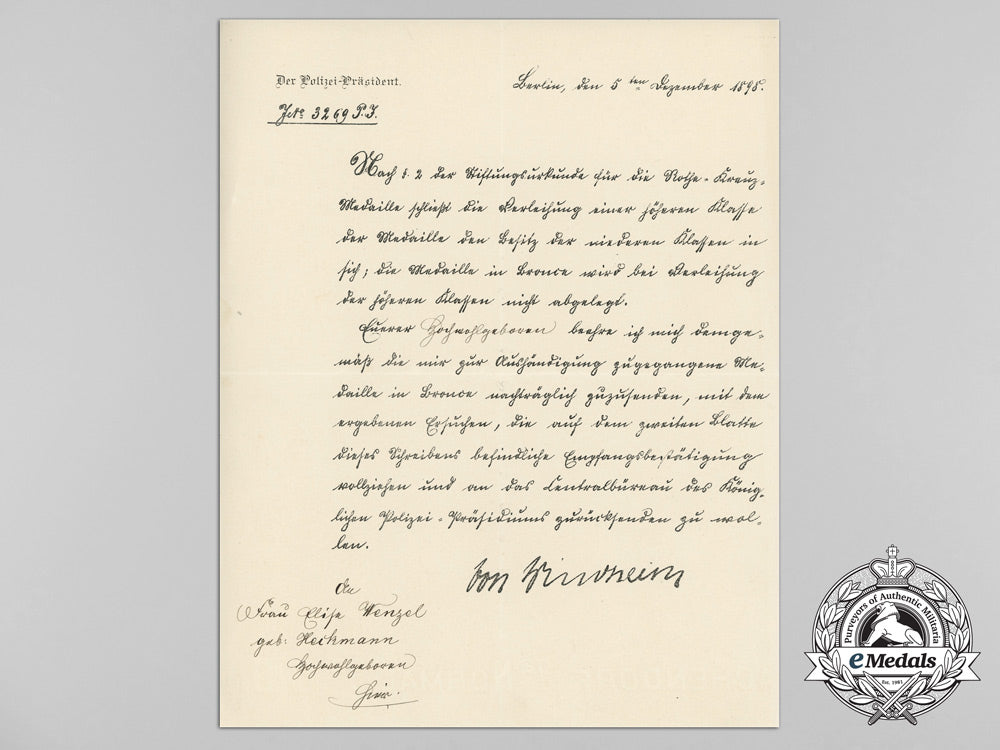 Der Polizei-Präsident.
Berlin, den 5ten Dezember 1898.
3269 P.J.
Nach §. 2 der Stiftungsurkunde für die Rothe-Kreuz-
Medaille schließt die Verleihung einer höheren Klasse
der Medaille den Besitz der niederen Klassen in
sich; die Medaille in Bronce wird bei Verleihung
der höheren Klassen nicht abgelegt.
Euerer Hochwohlgeboren beehre ich mich demge-
mäß die mir zur Aushändigung zugegangene Me-
daille in Bronce nachträglich zuzusenden, mit dem
ergebenen Ersuchen, die auf dem zweiten Blatte
dieses Schreibens befindliche Empfangsbestätigung
vollziehen und an das Centralbüreau des König-
lichen Polizei-Präsidiums zurücksenden zu wol-
len.
von Windheim
An
Frau Elise Wenzel
geb: Heckmann
Hochwohlgeboren
Hier.
Purveyors of Authentic Militaria
eMedals
Est. 1961